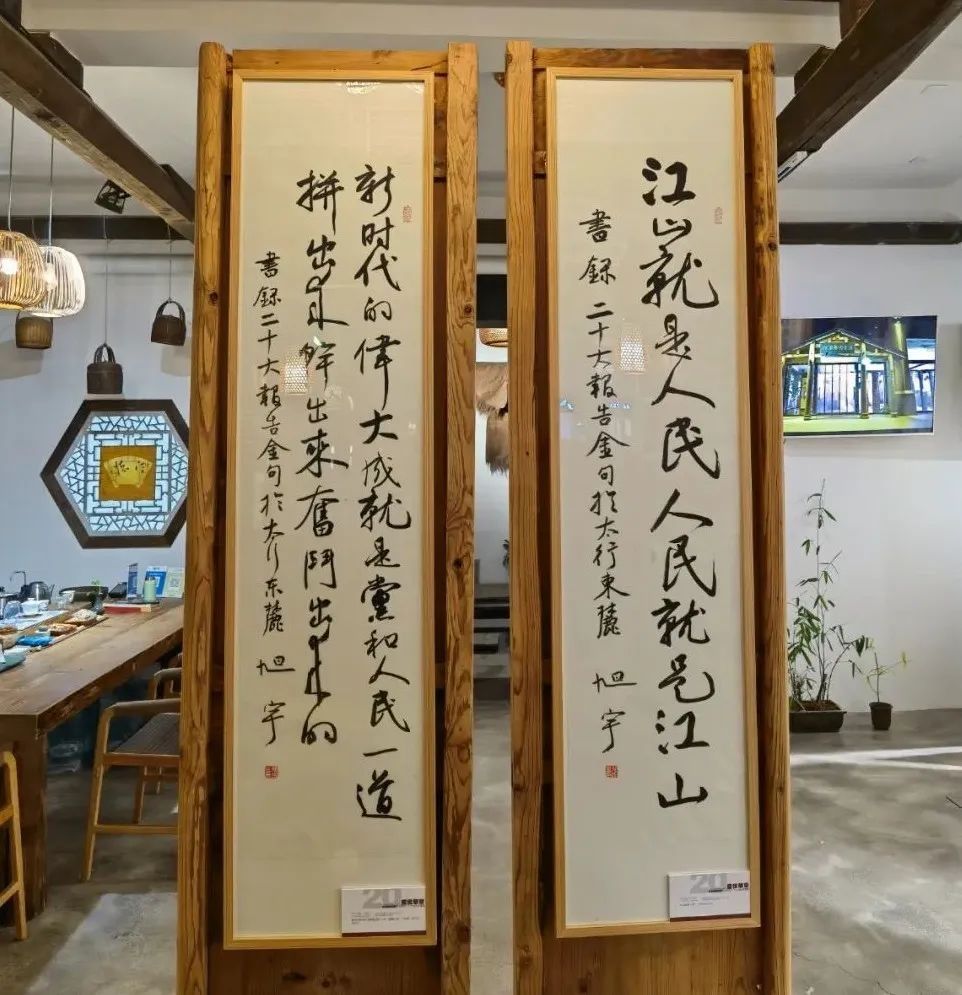 江山就是人民人民就是江山
書録二十大報告金句於太行東麓
旭宇
新时代的偉大成就是黨和人民一道
拼出来幹出來奮鬥出来的
書録二十大報告金句於太行东麓
旭宇
20
20